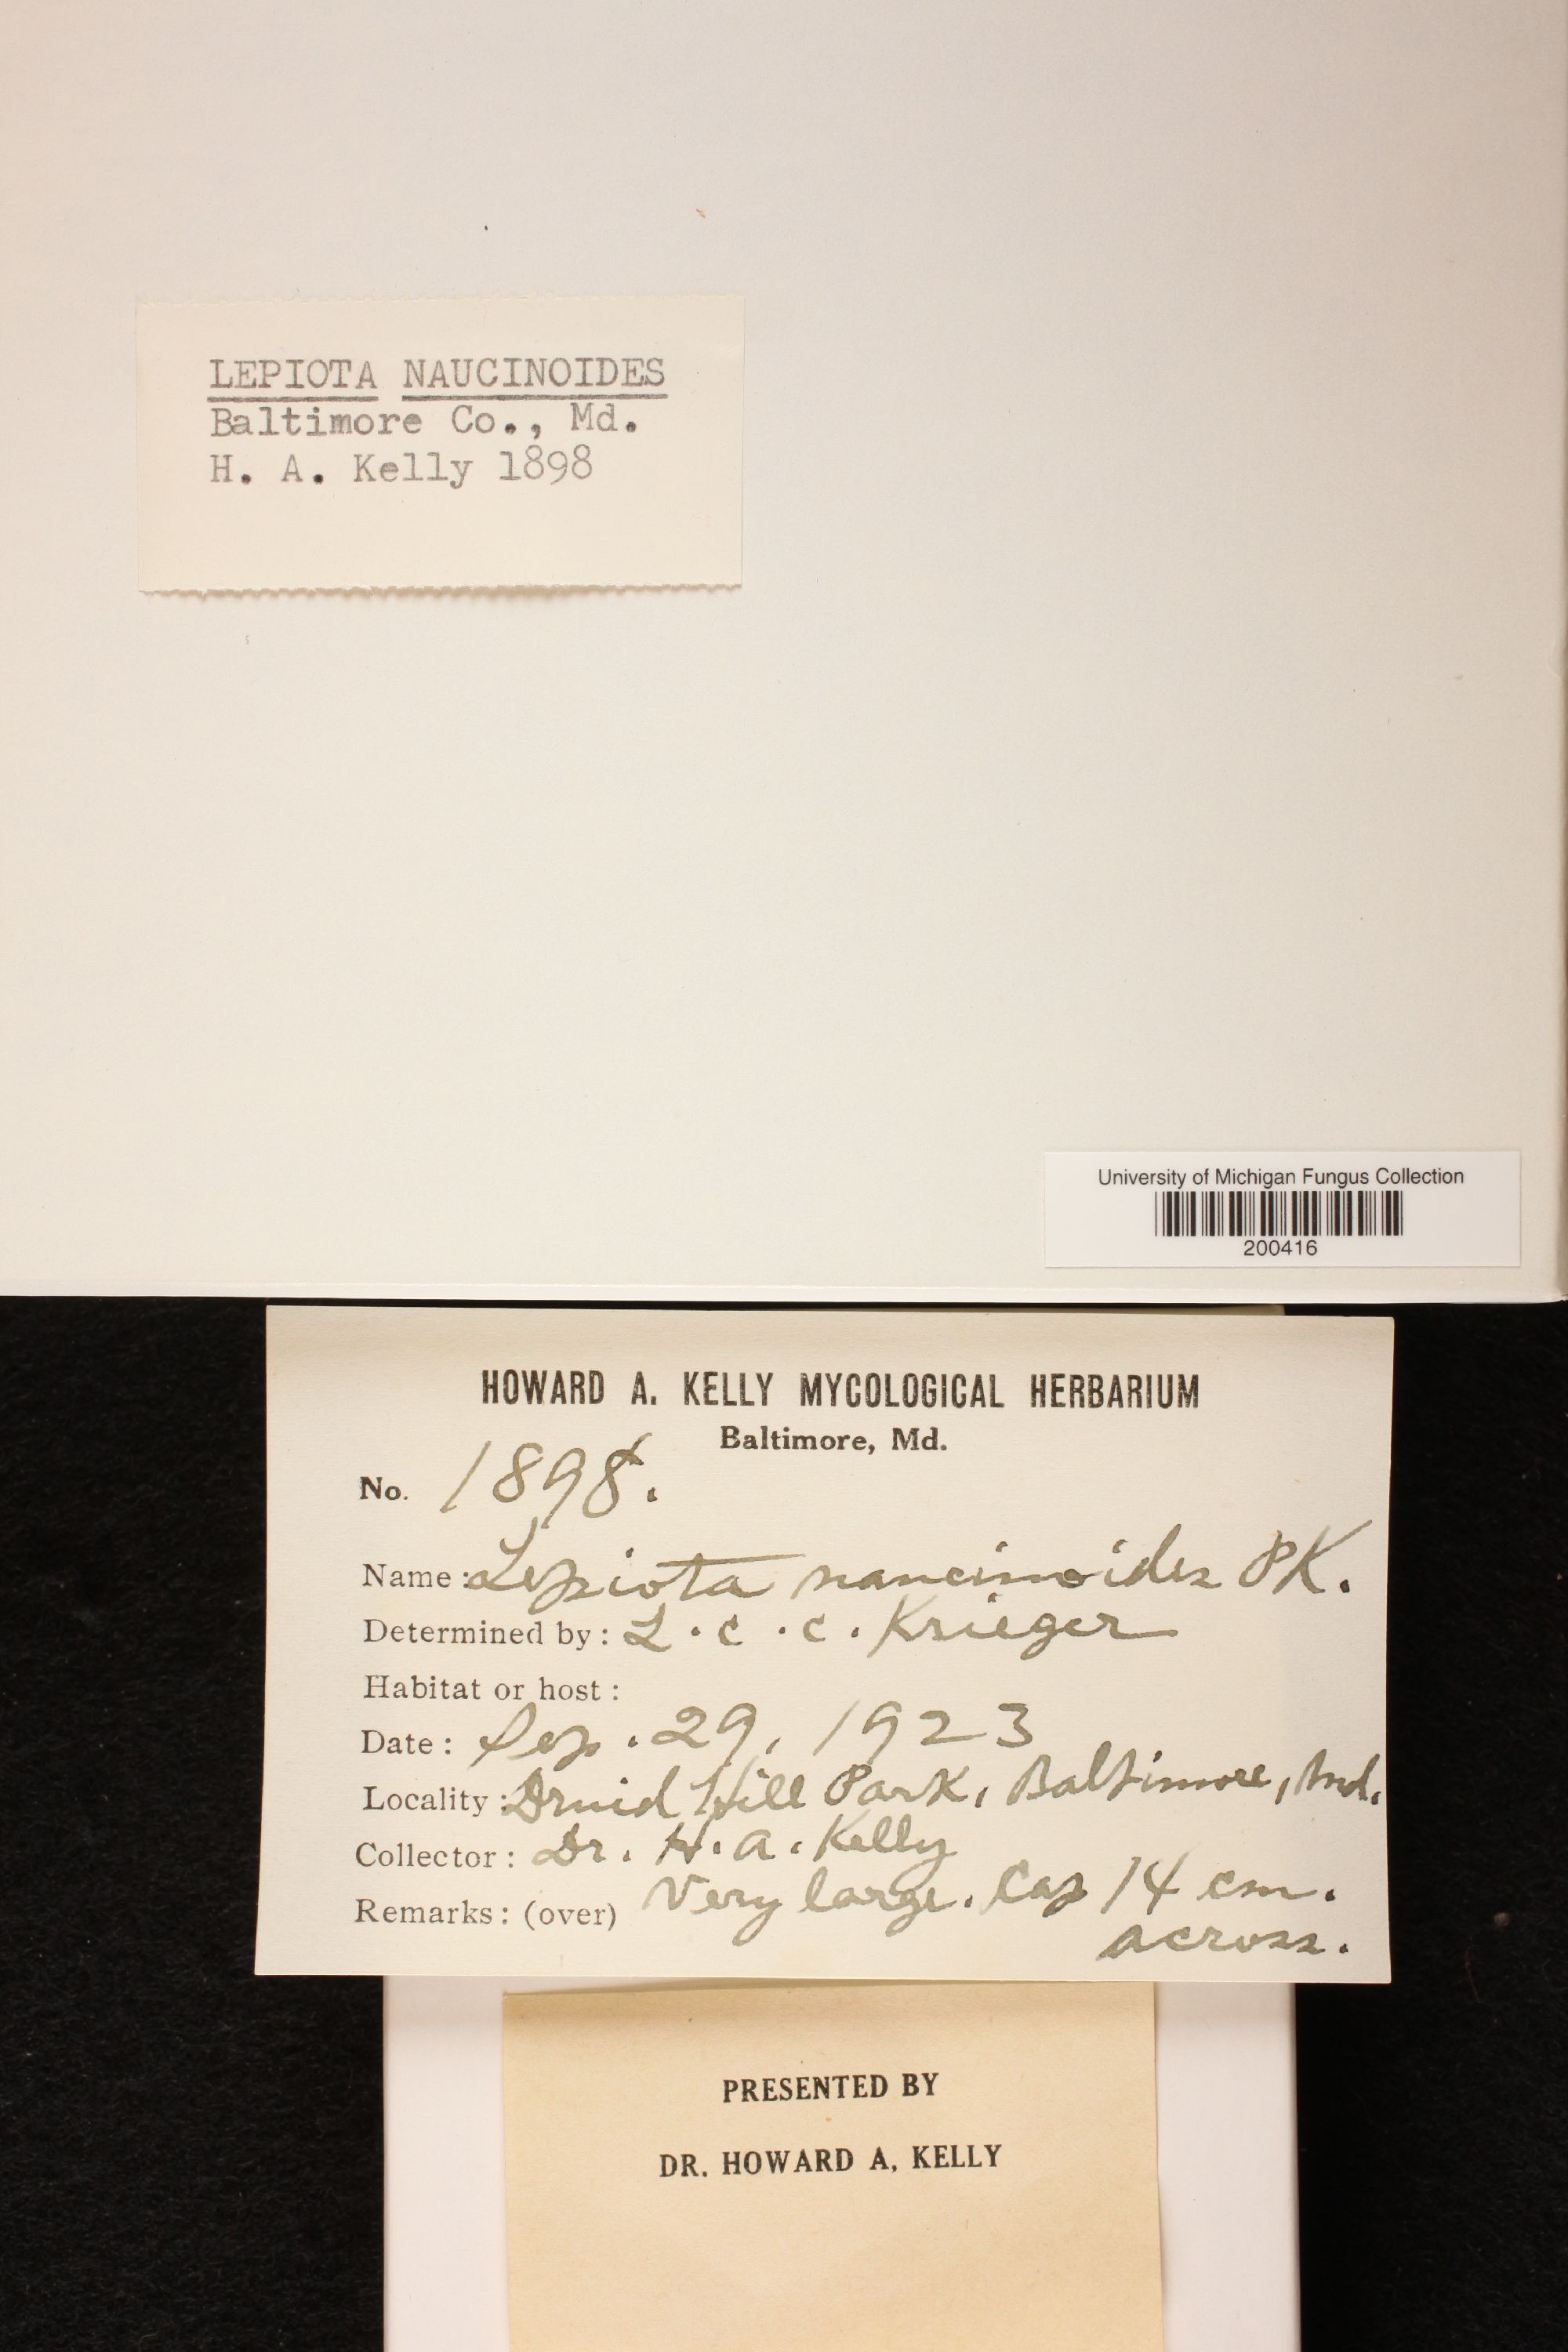 LEPIOTA NAUCINOIDES
Baltimore Co., Md.
H. A. Kelly 1898
University of Michigan Fungus Collection
200416
HOWARD A. KELLY MYCOLOGICAL HERBARIUM
Baltimore, Md.
No. 1898.
Name: Lepiota naucinoides PK.
Determined by: L.C.C. Krieger
Habitat or host:
Date: Sep. 29, 1923
Locality: Druid Hill Park, Baltimore, Md.
Collector: Dr. H. A. Kelly
Remarks: (over) Very large. Cap 14 cm.
across.
PRESENTED BY
DR. HOWARD A. KELLY